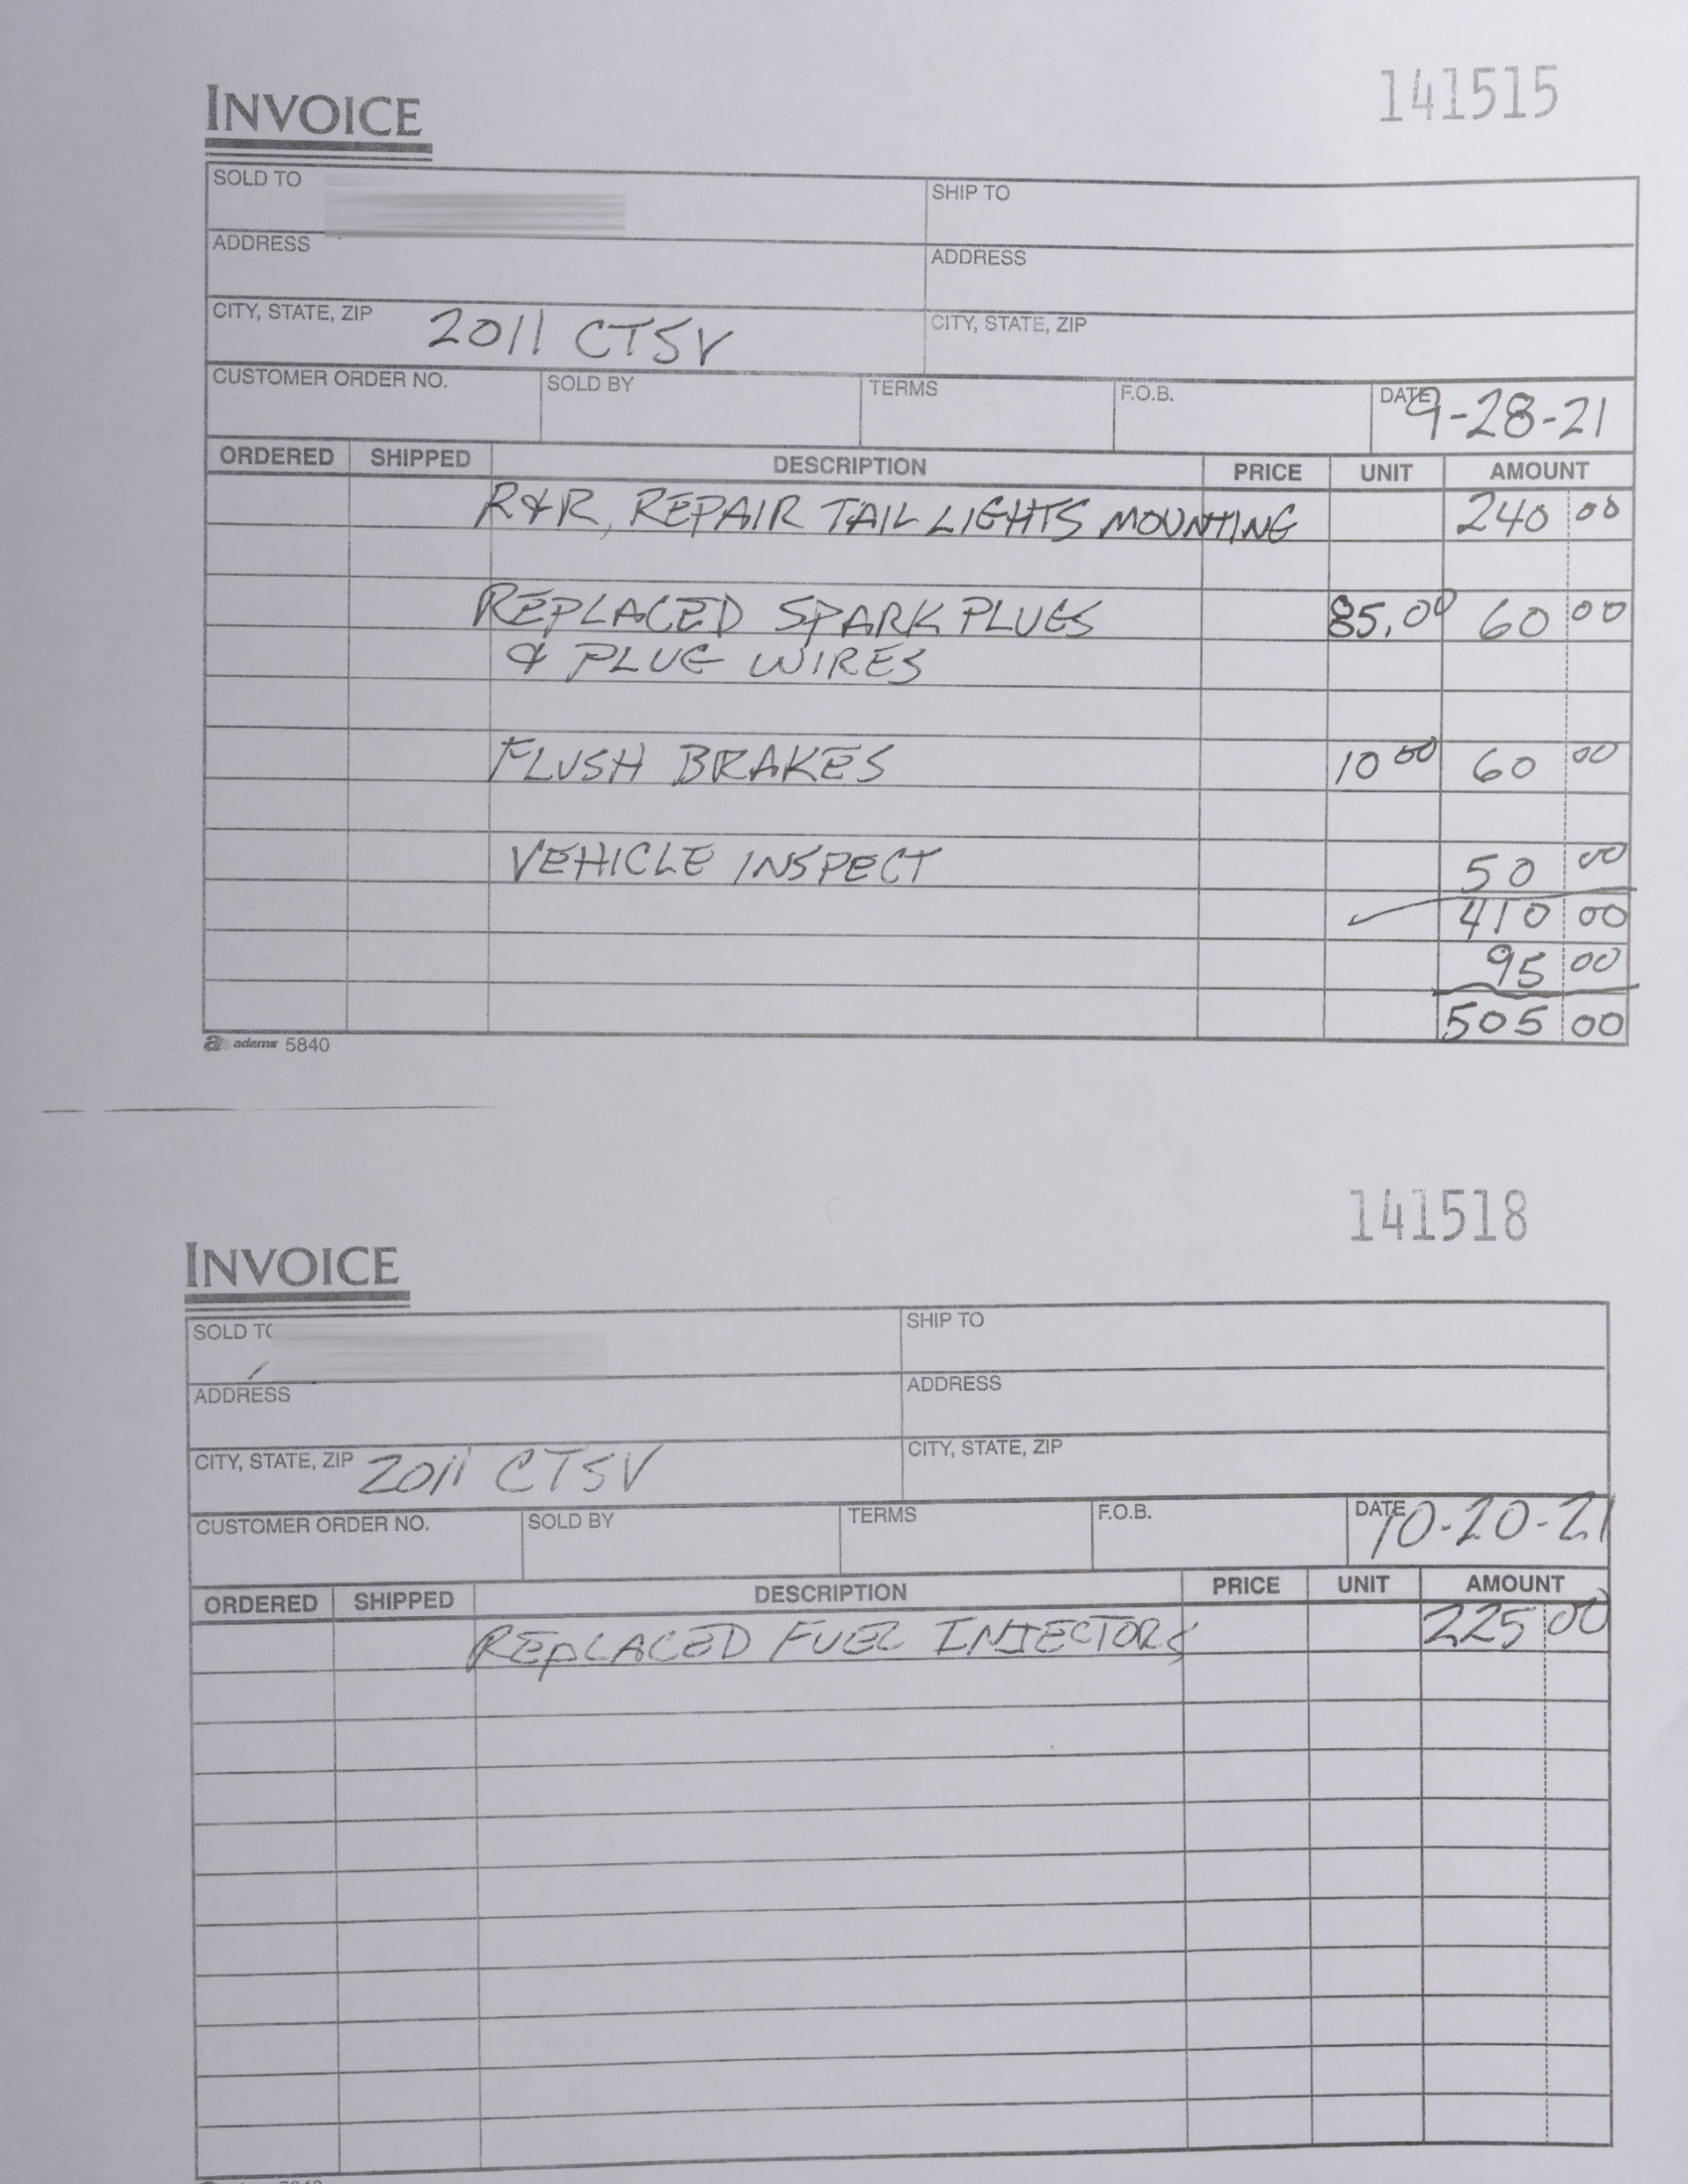 141515
INVOICE
SOLD TO
SHIP TO
ADDRESS
ADDRESS
CITY, STATE, ZIP 2011 CTSV
CITY, STATE, ZIP
CUSTOMER ORDER NO. SOLD BY TERMS F.O.B. DATE 9-28-21
ORDERED SHIPPED DESCRIPTION PRICE UNIT AMOUNT
R&R, REPAIR TAIL LIGHTS MOUNTING 240 00
REPLACED SPARK PLUGS 85.00 60 00
& PLUG WIRES
FLUSH BRAKES 10 00 60 00
VEHICLE INSPECT 50 00
410 00
95 00
505 00
a adams 5840
141518
INVOICE
SOLD TO
SHIP TO
ADDRESS
ADDRESS
CITY, STATE, ZIP 2011 CTSV
CITY, STATE, ZIP
CUSTOMER ORDER NO. SOLD BY TERMS F.O.B. DATE 10-20-21
ORDERED SHIPPED DESCRIPTION PRICE UNIT AMOUNT
REPLACED FUEL INJECTORS 225 00